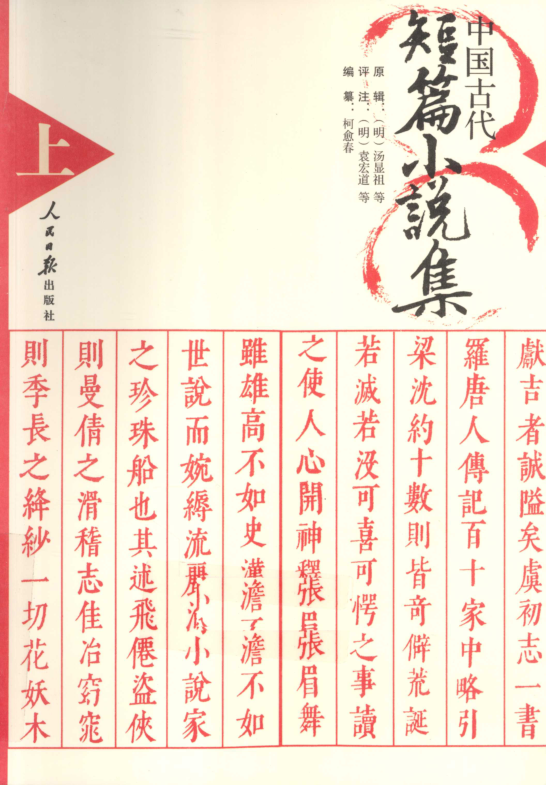 中国古代
短篇小説集
原 辑：（明）汤显祖 等
评 注：（明）袁宏道 等
编 纂：柯愈春
上
人民日报出版社
獻吉者誠隘矣虞初志一書
羅唐人傳記百十家中略引
梁沈約十數則皆奇僻荒誕
若滅若没可喜可愕之事讀
之使人心開神釋張眉張眉舞
雖雄高不如史漢澹澹不如
世說而婉縟流麗小說家
之珍珠船也其述飛僊盜俠
則曼倩之滑稽志佳冶窈窕
則季長之絳紗一切花妖木